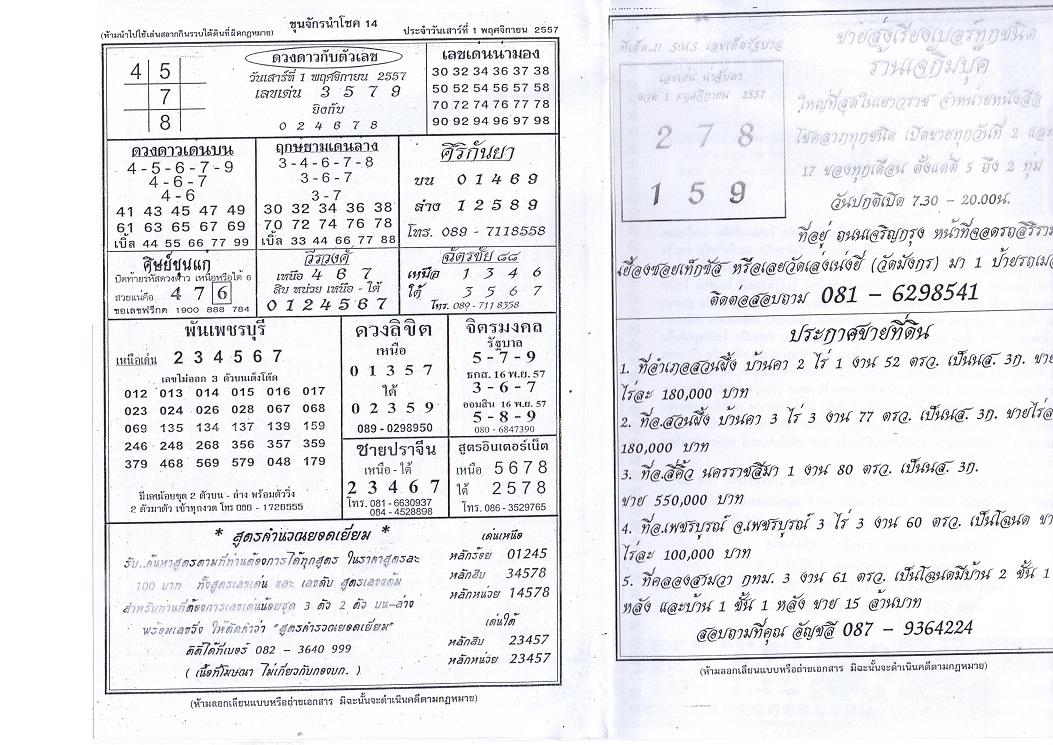 ขุนจักรนำโชค 14
(ห้ามนำไปใช้เล่นสลากกินรวบได้ดินที่ผิดกฎหมาย)
ประจำวันเสาร์ที่ 1 พฤศจิกายน 2557
4 5
7
8
ดวงดาวกับตัวเลข
วันเสาร์ที่ 1 พฤศจิกายน 2557
เลขเด่น 3 5 7 9
ยิงกับ
0 2 4 6 7 8
เลขเด่นน่ามอง
30 32 34 36 37 38
50 52 54 56 57 58
70 72 74 76 77 78
90 92 94 96 97 98
ดวงดาวเดนบน
4-5-6-7-9
4-6-7
4-6
41 43 45 47 49
61 63 65 67 69
เบิ้ล 44 55 66 77 99
ฤกษ์ยามเดนลาง
3-4-6-7-8
3-6-7
3-7
30 32 34 36 38
70 72 74 76 78
เบิ้ล 33 44 66 77 88
ศิริกันยา
บน 0 1 4 6 9
ล่าง 1 2 5 8 9
โทร. 089 - 7118558
ศิษย์ขุนแก
ปิดท้ายรหัสดวงดาว เหนือหรือใต้ 6
สวยแน่คือ 4 7 6
ขอเลขฟรีกด 1900 888 784
วีรวงศ์
เหนือ 4 6 7
สิบ หน่วย เหนือ - ใต้
0 1 2 4 5 6 7
ฉัตรชัย ๘๘
เหนือ 1 3 4 6
ใต้ 3 5 6 7
โทร. 089 - 711 8358
พันเพชรบุรี
เหนือเด่น 2 3 4 5 6 7
เลขไม่ออก 3 ตัวบนเต็งโต๊ด
012 013 014 015 016 017
023 024 026 028 067 068
069 135 134 137 139 159
246 248 268 356 357 359
379 468 569 579 048 179
มีเลขน้อยชุด 2 ตัวบน - ล่าง พร้อมตัววิ่ง
2 ตัวมาตัว เข้าทุกงวด โทร 086 - 1726555
ดวงลิขิต
เหนือ
0 1 3 5 7
ใต้
0 2 3 5 9
089 -0298950
จิตรมงคล
รัฐบาล
5-7-9
ธกส. 16 พ.ย. 57
3-6-7
ออมสิน 16 พ.ย. 57
5-8-9
080 -6847390
ชายปราจีน
เหนือ - ใต้
2 3 4 6 7
โทร. 081 - 6630937
084 - 4528898
สูตรอินเตอร์เน็ต
เหนือ 5 6 7 8
ใต้ 2 5 7 8
โทร. 086 - 3529765
* สูตรคำนวณยอดเยี่ยม *
รับ..ค้นหาสูตรตามที่ท่านต้องการได้ทุกสูตร ในราคาสูตรละ
100 บาท ทั้งสูตรเลขเด่น และ เลขดับ สูตรเลขแต้ม
สำหรับท่านที่ต้องการเลขเด่นน้อยชุด 3 ตัว 2 ตัว บน-ล่าง
พร้อมเลขวิ่ง ให้ตัดคำว่า "สูตรคำรวณยอดเยี่ยม"
ติดได้ที่เบอร์ 082 - 3640 999
( เนื้อที่โฆษณา ไม่เกี่ยวกับกองบก. )
เด่นเหนือ
หลักร้อย 01245
หลักสิบ 34578
หลักหน่วย 14578
เด่นใต้
หลักสิบ 23457
หลักหน่วย 23457
(ห้ามลอกเลียนแบบหรือถ่ายเอกสาร มิฉะนั้นจะดำเนินคดีตามกฎหมาย)
ทีเด็ด..!! SMS เลขเด็ดรัฐบาล
เลขเด่น น่าจับตา
งวด 1 พฤศจิกายน 2557
2 7 8
1 5 9
ขายส่งเรียงเบอร์ทุกชนิด
ร้านเจกีมบุค
ใหญ่ที่สุดในเยาวราช จำหน่ายหนังสือ
โชคลาภทุกชนิด เปิดขายทุกวันที่ 2 และ
17 ของทุกเดือน ตั้งแต่ตี 5 ถึง 2 ทุ่ม
วันปกติเปิด 7.30 - 20.00น.
ที่อยู่ ถนนเจริญกรุง หน้าที่จอดรถสิริราม
เยื้องซอยเท็กซัส หรือเลยวัดเล่งเน่งยี่ (วัดมังกร) มา 1 ป้ายรถเมล์
ติดต่อสอบถาม 081 - 6298541
ประกาศขายที่ดิน
1. ที่อำเภอสวนผึ้ง บ้านคา 2 ไร่ 1 งาน 52 ตรว. เป็นนส. 3ก. ขาย
ไร่ละ 180,000 บาท
2. ที่อ.สวนผึ้ง บ้านคา 3 ไร่ 3 งาน 77 ตรว. เป็นนส. 3ก. ขายไร่ละ
180,000 บาท
3. ที่อ.สี่คิ้ว นครราชสีมา 1 งาน 80 ตรว. เป็นนส. 3ก.
ขาย 550,000 บาท
4. ที่อ.เพชรบูรณ์ จ.เพชรบูรณ์ 3 ไร่ 3 งาน 60 ตรว. เป็นโฉนด ขาย
ไร่ละ 100,000 บาท
5. ที่คลองสามวา กทม. 3 งาน 61 ตรว. เป็นโฉนดมีบ้าน 2 ชั้น 1
หลัง และบ้าน 1 ชั้น 1 หลัง ขาย 15 ล้านบาท
สอบถามที่คุณ อัญชลี 087 - 9364224
(ห้ามลอกเลียนแบบหรือถ่ายเอกสาร มิฉะนั้นจะดำเนินคดีตามกฎหมาย)